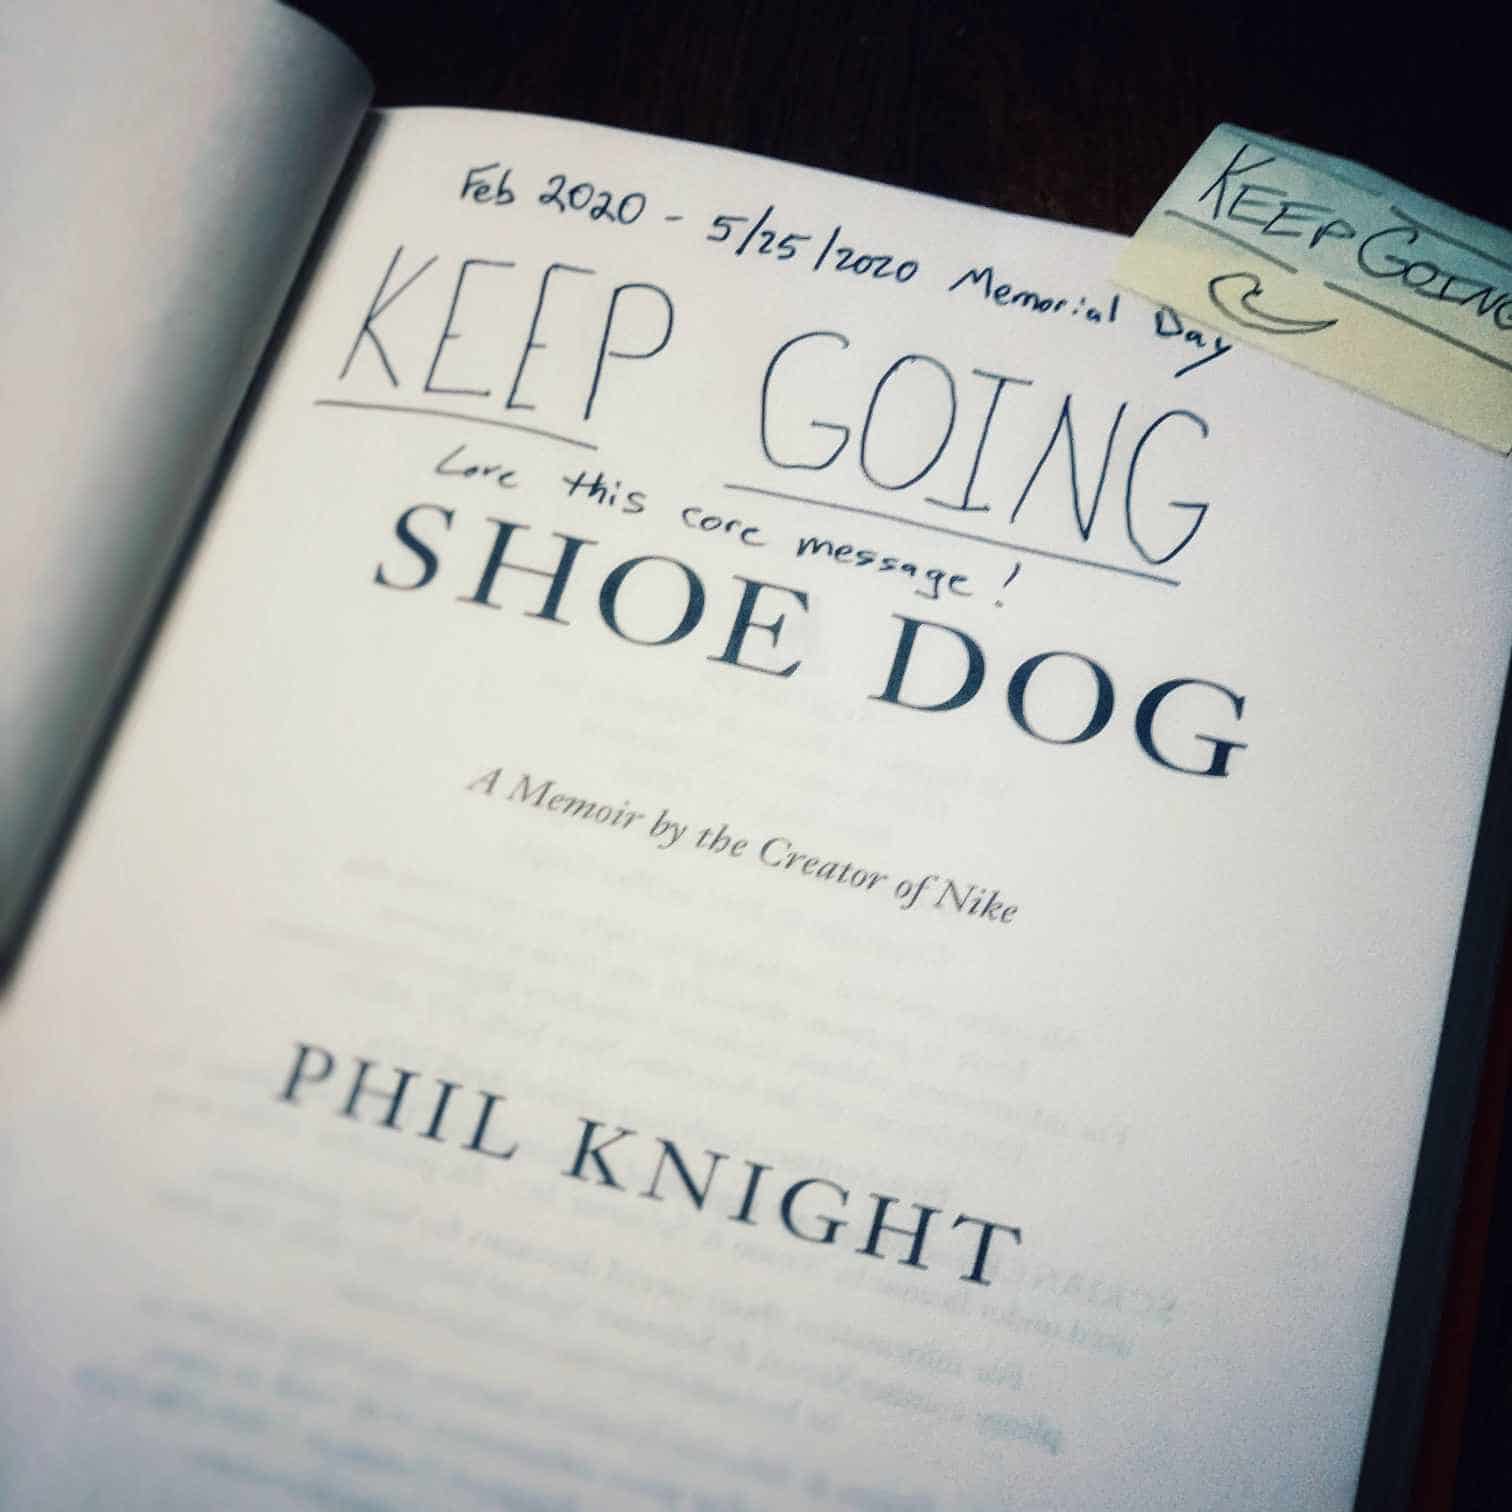 Feb 2020 - 5/25/2020 Memorial Day
KEEP GOING
KEEP GOING
Love this core message!
SHOE DOG
A Memoir by the Creator of Nike
PHIL KNIGHT